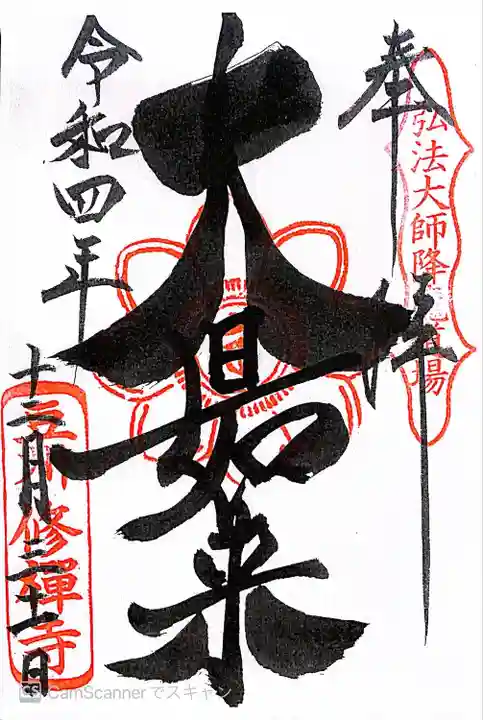 奉拝
弘法大師降誕道場
大日如来
令和四年
十二月三十一日
修禪寺
CamScannerでスキャン